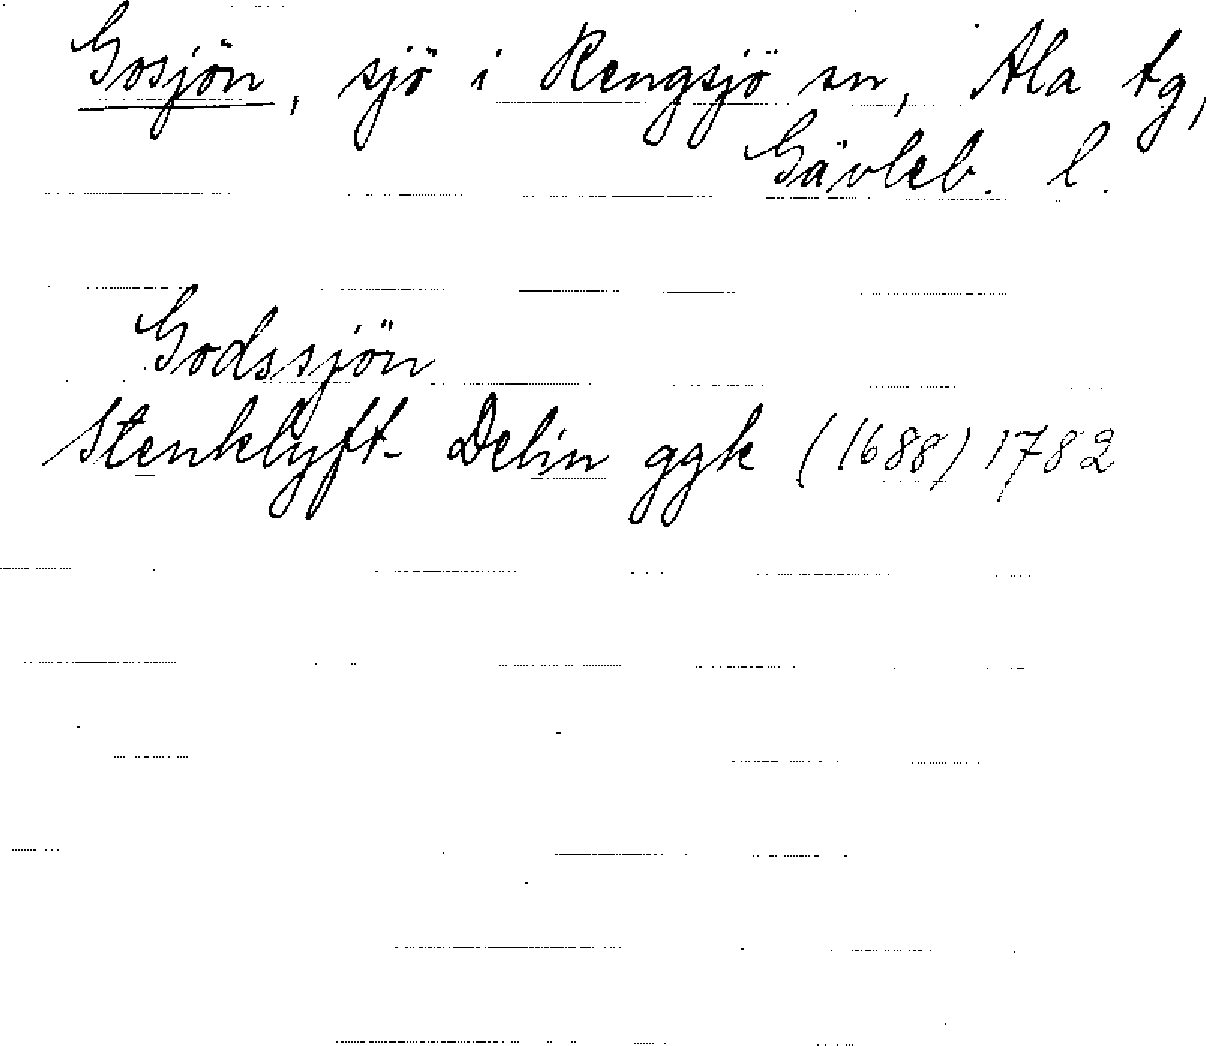 Gosjön, sjö i Rengsjö sn, Ala tg,
Gävleb. l.
Godssjön
Stenklyft- Delin ggk (1688) 1782